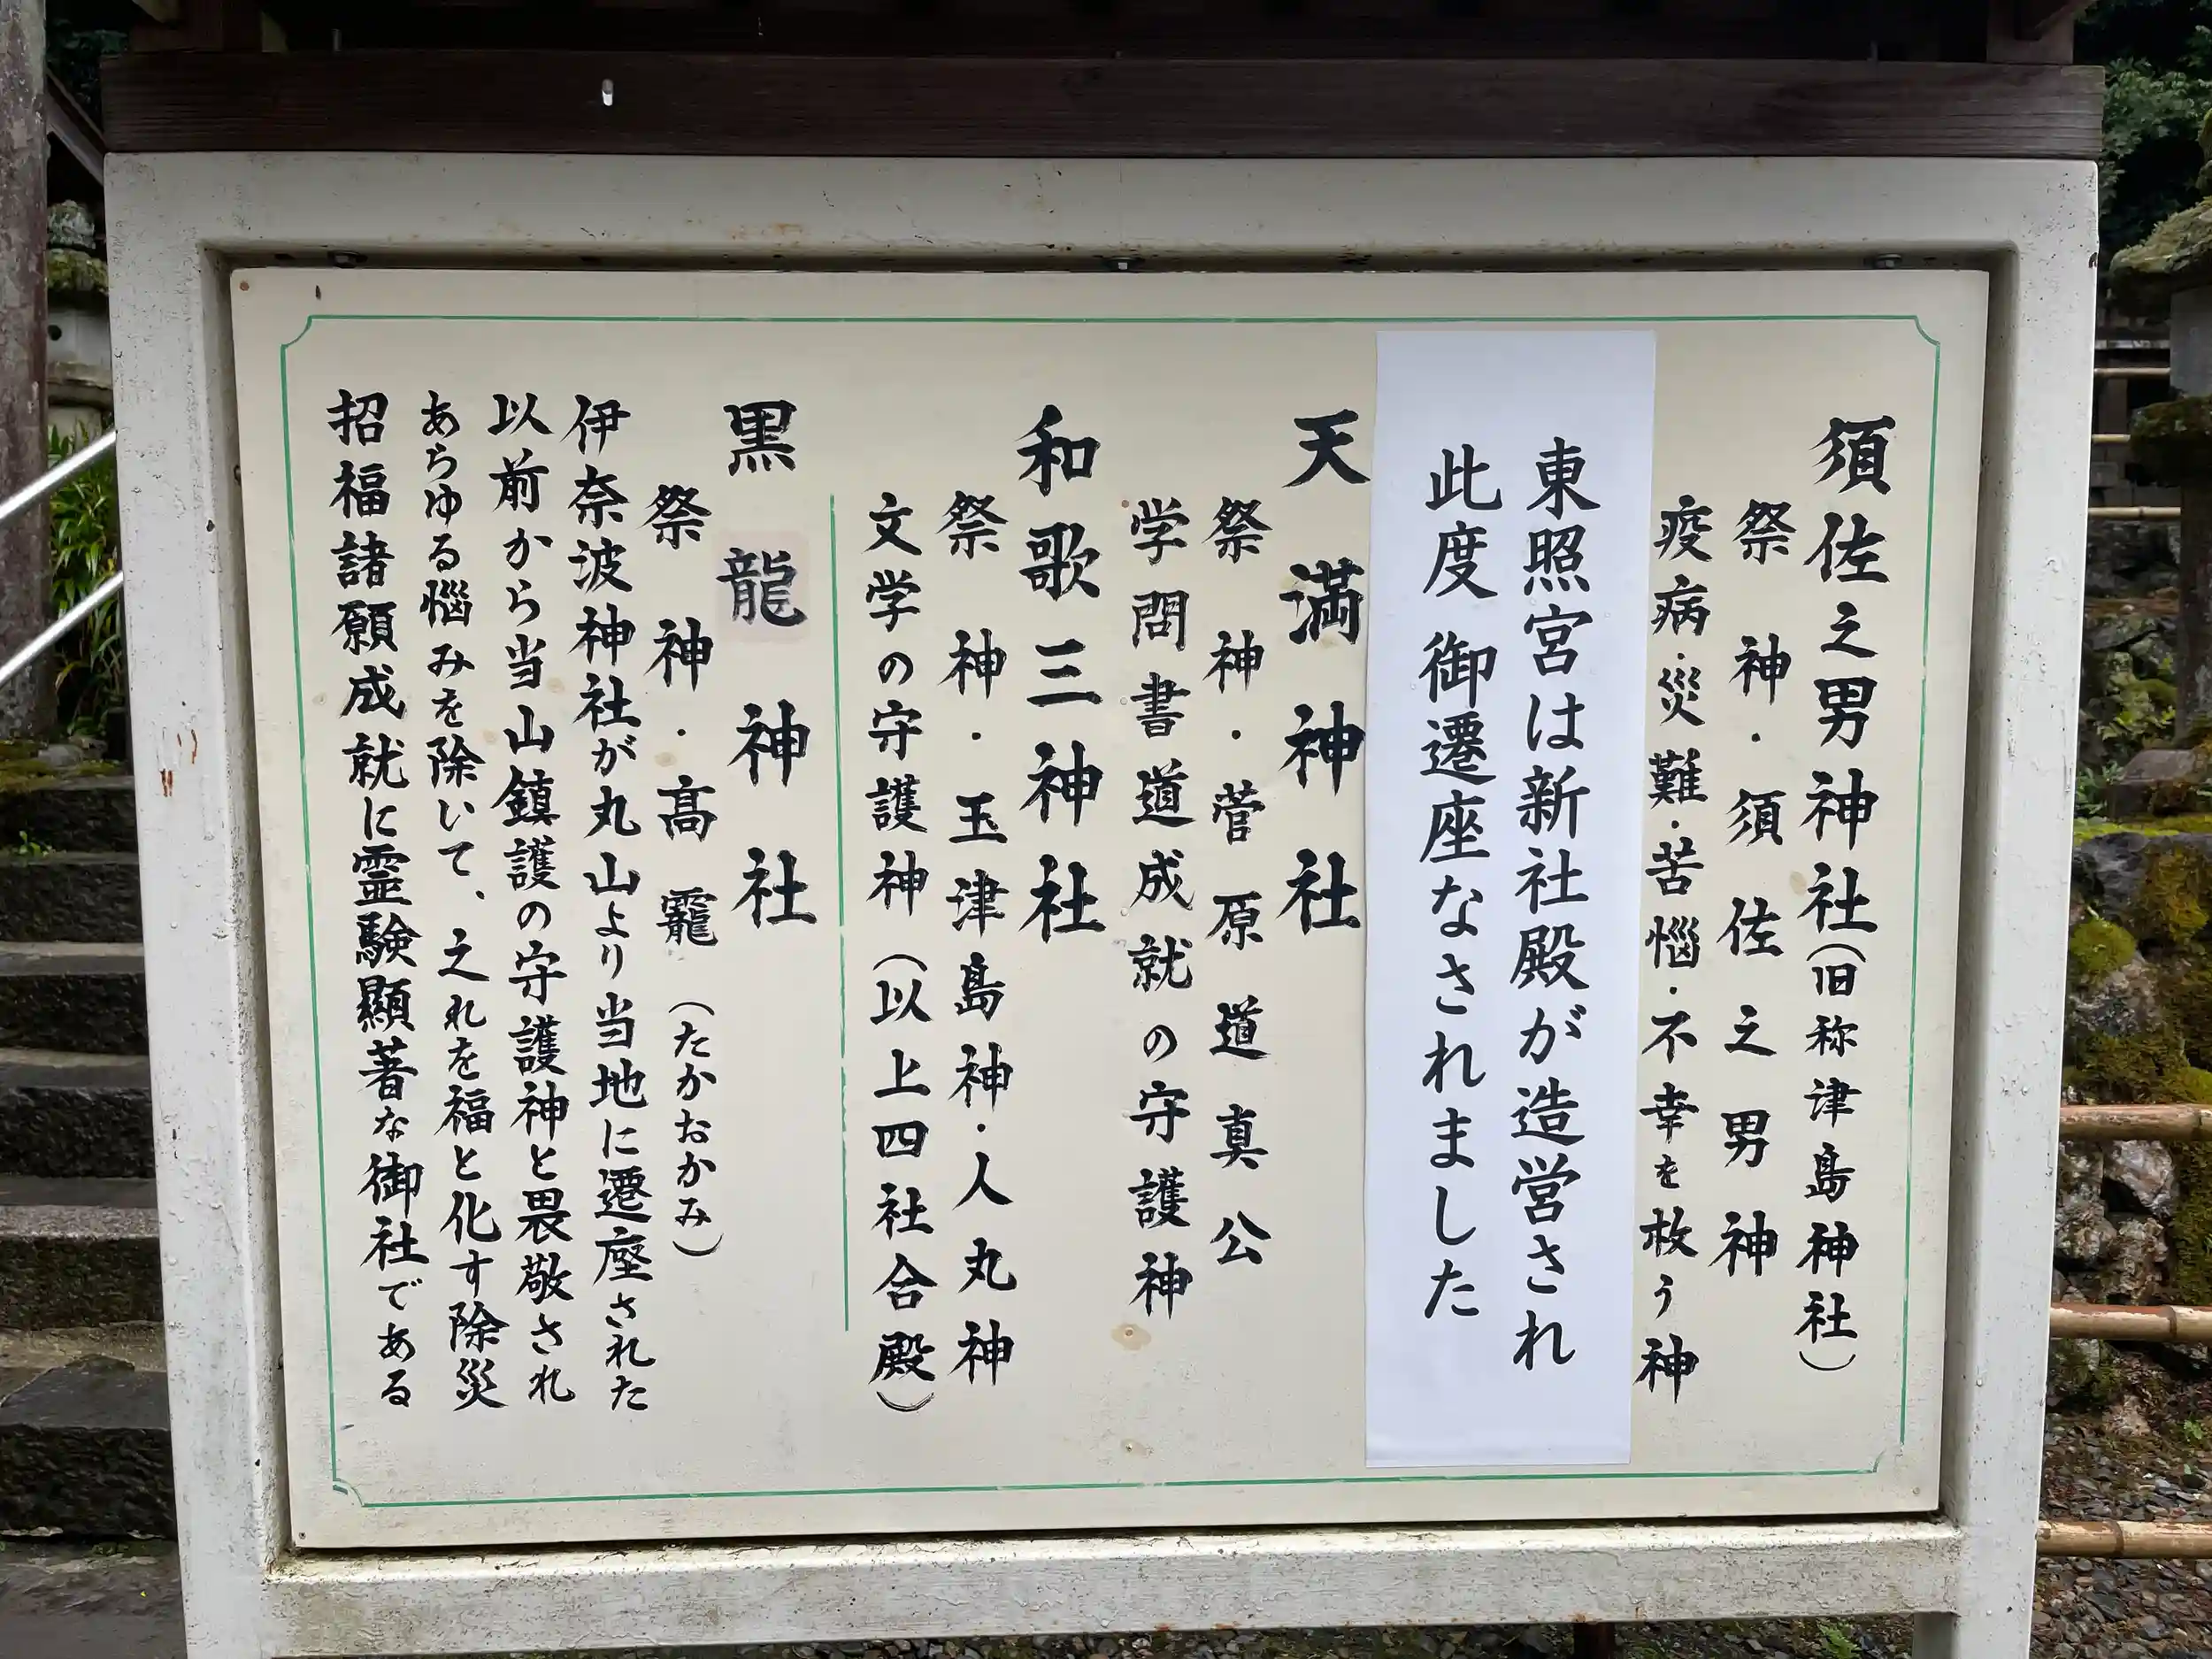 須佐之男神社(旧称津島神社)
祭神・須佐之男神
疫病・災難・苦悩・不幸を救う神
東照宮は新社殿が造営され
此度御遷座なされました
天満神社
祭神・菅原道真公
学問書道成就の守護神
和歌三神社
祭神・玉津島神・人丸神
文学の守護神(以上四社合殿)
黒龍神社
祭神・高龗(たかおかみ)
伊奈波神社が丸山より当地に遷座された
以前から当山鎮護の守護神と畏敬され
あらゆる悩みを除いて、之れを福と化す除災
招福諸願成就に霊験顕著な御社である